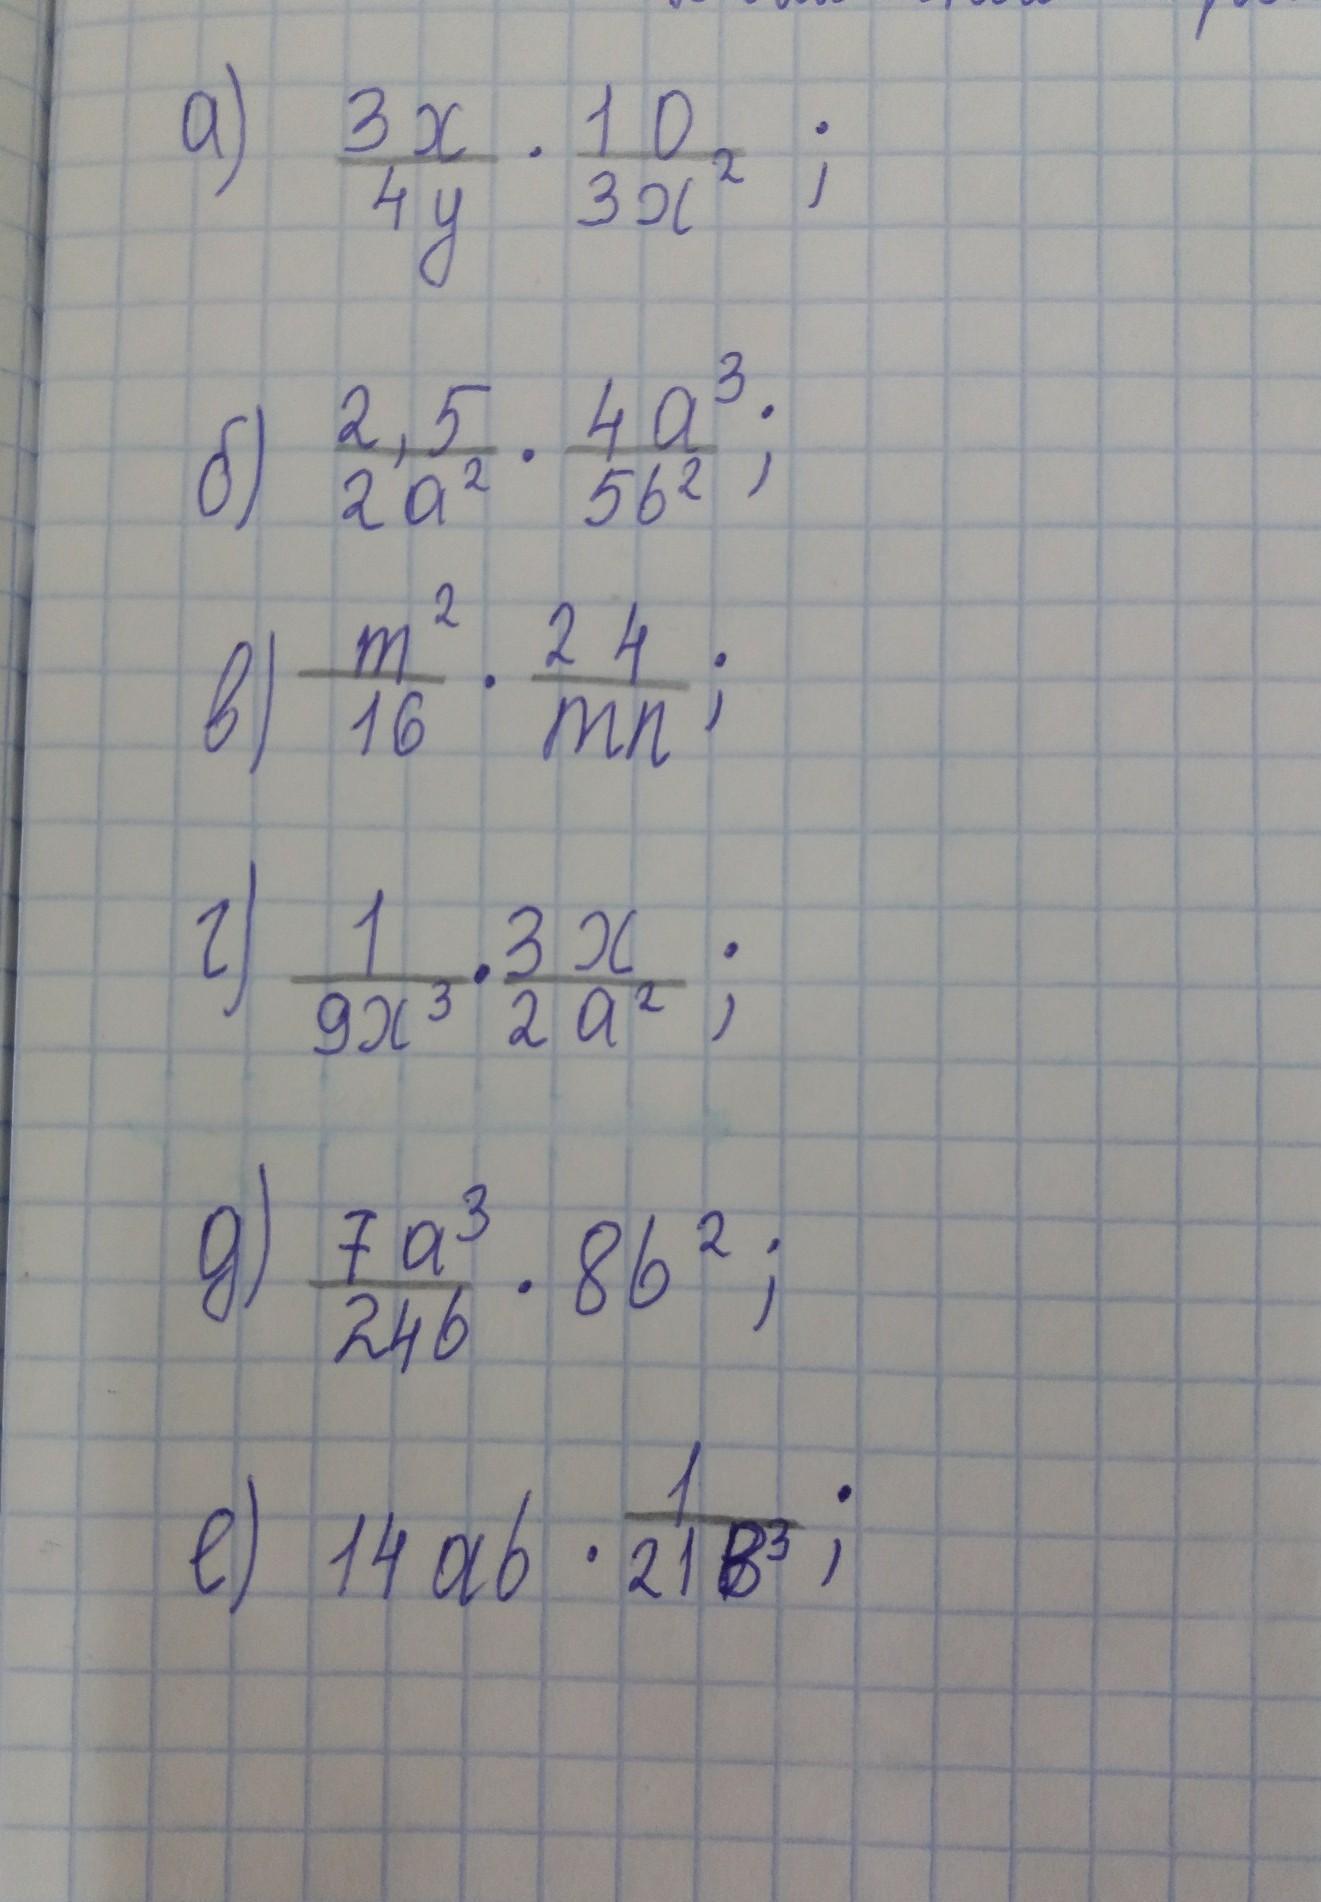 а) 3x/4y · 10/3x² ;
б) 2,5/2a² · 4a³/5b² ;
в) m²/16 · 24/mn ;
г) 1/9x³ · 3x/2a² ;
д) 7a³/24b · 8b² ;
е) 14ab · 1/21b³ ;